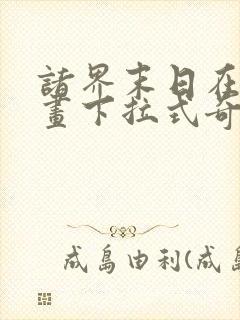 諸界末日在
畫下拉式奇
成島由利(成島